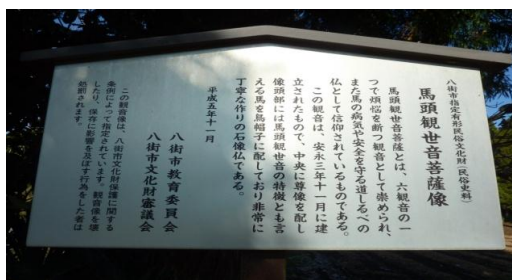 八街市指定有形民俗文化財(民俗史料)
馬頭観世音菩薩像
馬頭観世音菩薩とは、六観音の一
つで煩悩を断つ観音として崇められ、
また馬の病気や安全を守る道しるべの
仏として信仰されているものである。
この観音は、安永三年十一月に建
立されたもので、中央に尊像を配し
像頭部には馬頭観世音の特徴とも言
える馬を烏帽子に配しており非常に
丁寧な作りの石像仏である。
平成五年十一月
八街市教育委員会
八街市文化財審議会
この観音像は、八街市文化財保護に関する
条例によって指定されています。観音像を壊
したり、保存に影響を及ぼす行為をした者は
処罰されます。